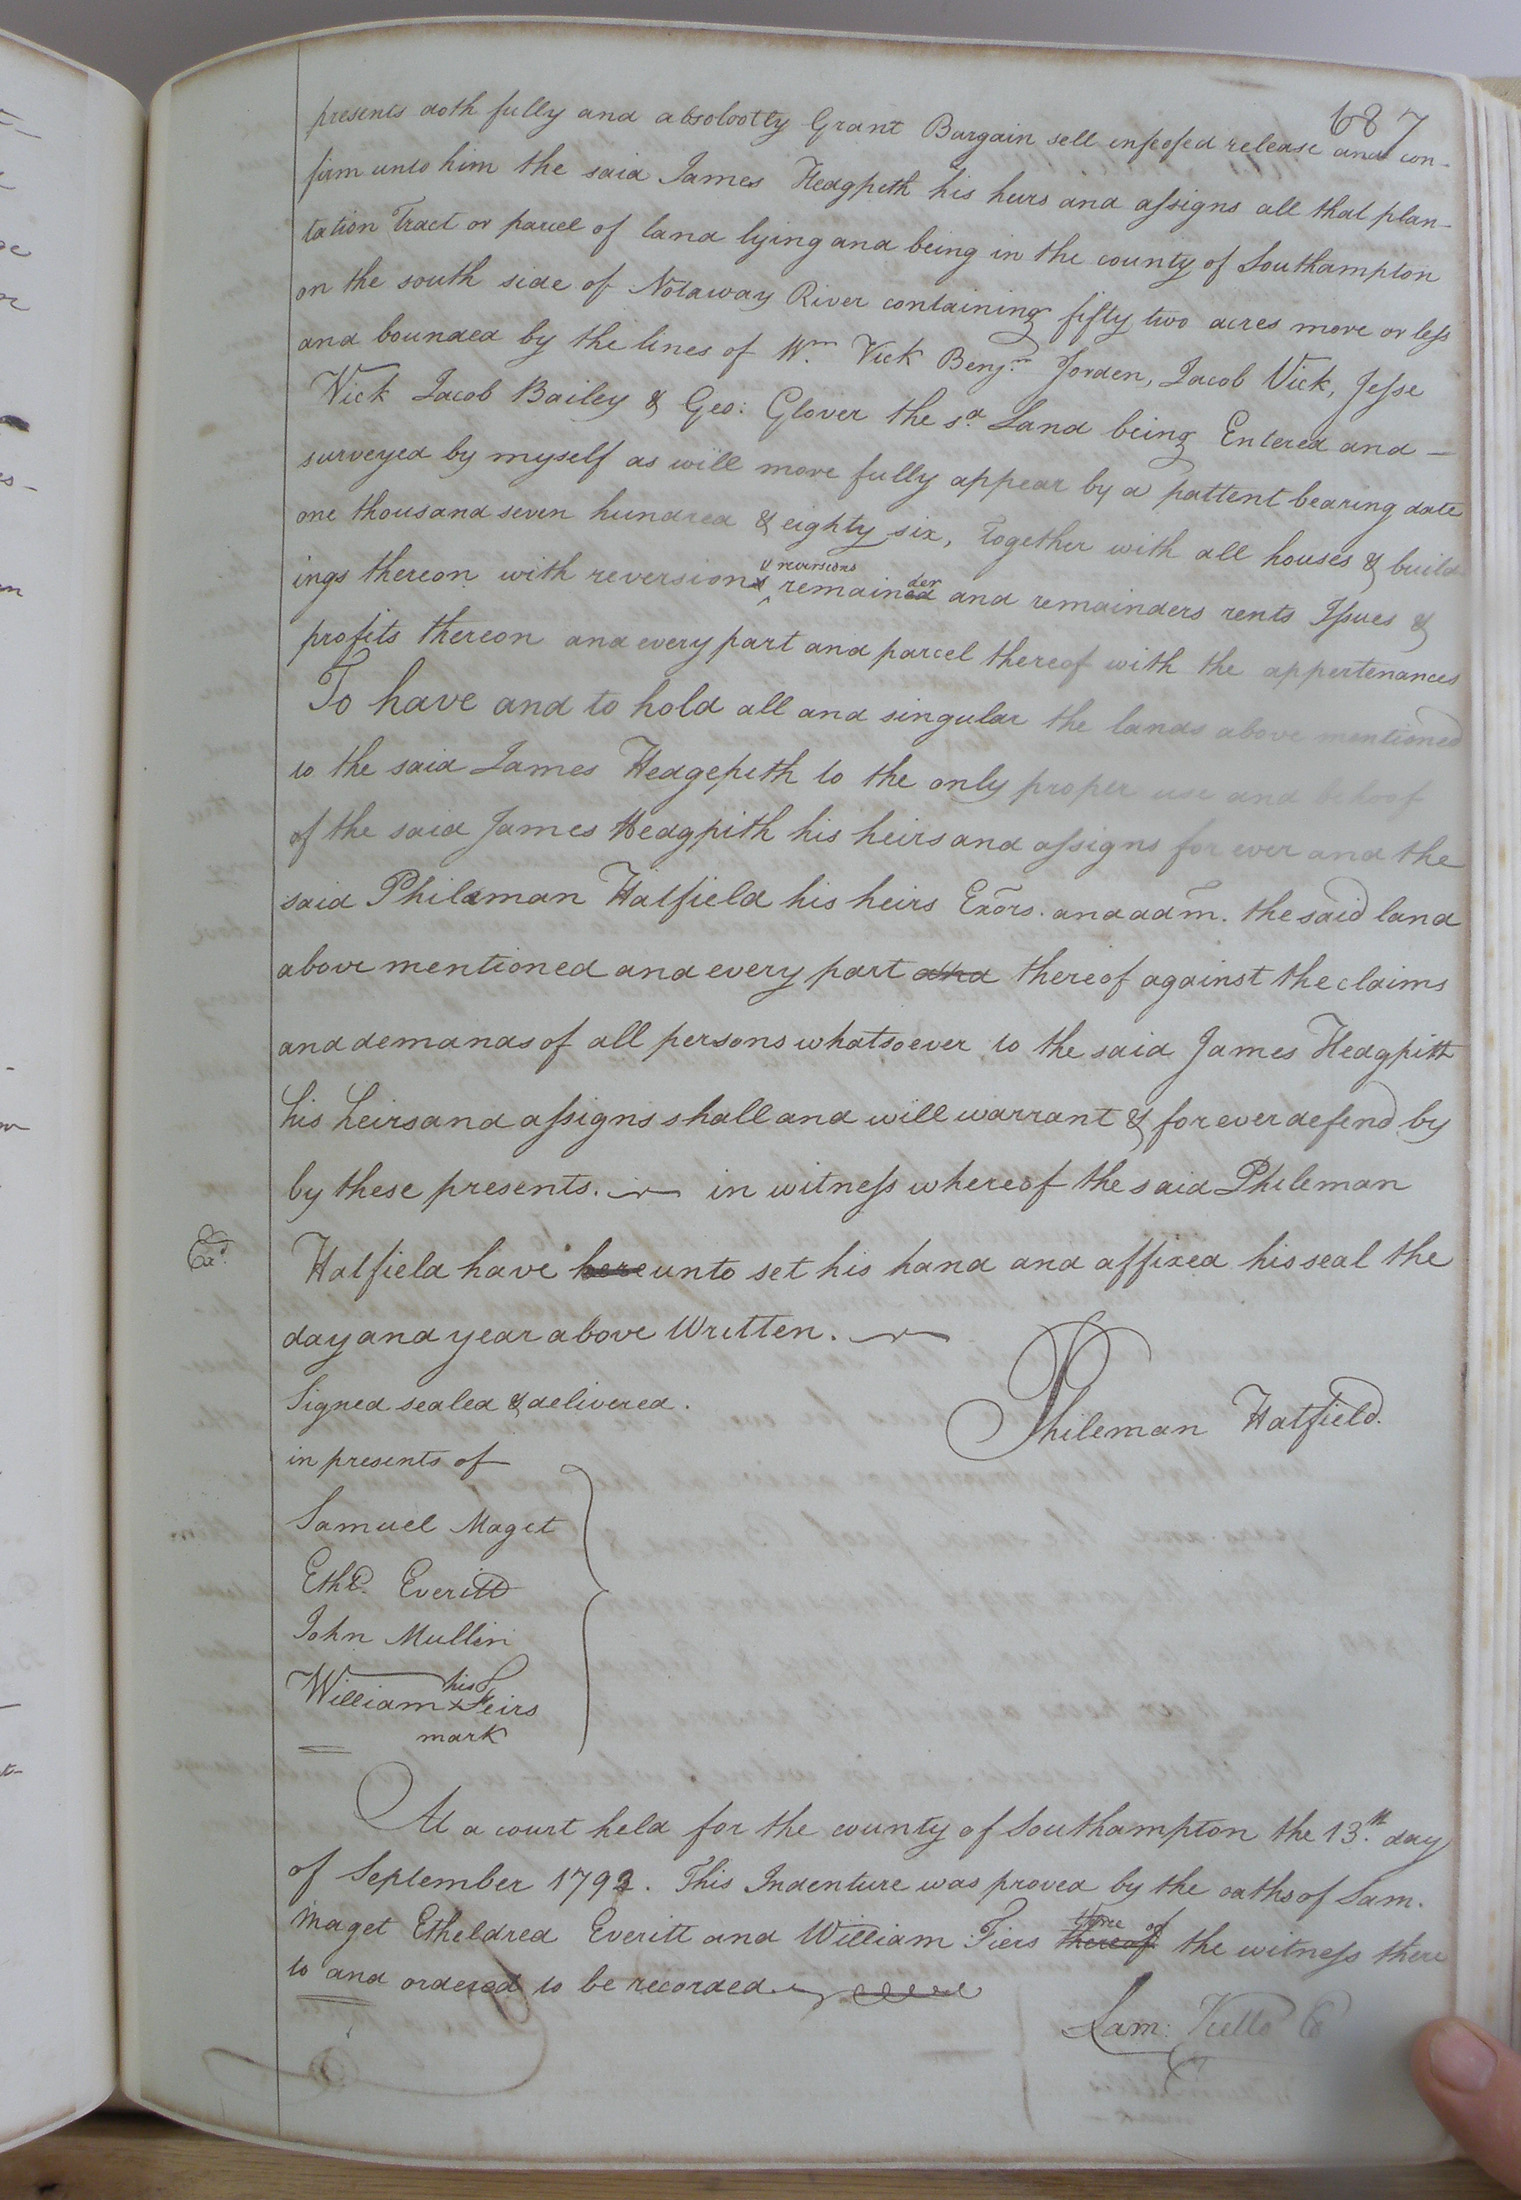 687
presents doth fully and absolootly Grant Bargain sell enfeofed release and con-
firm unto him the said James Hedgpeth his heirs and assigns all that plan-
tation Tract or parcel of land lying and being in the county of Southampton
on the south side of Notaway River containing fifty two acres more or less
and bounded by the lines of Wm. Vick Benj.n Jorden, Jacob Vick, Jesse
Vick Jacob Bailey & Geo: Glover the s.d Land being Entered and —
surveyed by myself as will more fully appear by a pattent bearing date
one thousand seven hundred & eighty six, Together with all houses & build
ings thereon with reversion & reversions remainder and remainders rents Issues &
profits thereon and every part and parcel thereof with the appertenances
To have and to hold all and singular the lands above mentioned
to the said James Hedgepeth to the only proper use and behoof
of the said James Hedgpith his heirs and assigns for ever and the
said Phileman Hatfield his heirs Exors. and adm. the said land
above mentioned and every part and thereof against the claims
and demands of all persons whatsoever to the said James Hedgpith
his heirs and assigns shall and will warrant & forever defend by
by these presents. in witness whereof the said Phileman
Ex.d
Hatfield have hereunto set his hand and affixed his seal the
day and year above Written.
Signed sealed & delivered.
Phileman Hatfield.
in presents of
Samuel Maget
Ethd. Everitt
John Mullin
his
William x Feirs
mark
At a court held for the county of Southampton the 13.th day
of September 1792. This Indenture was proved by the oaths of Sam.
Maget Etheldred Everitt and William Fiers three of the witness there
to and ordered to be recorded.
Sam: Kello C